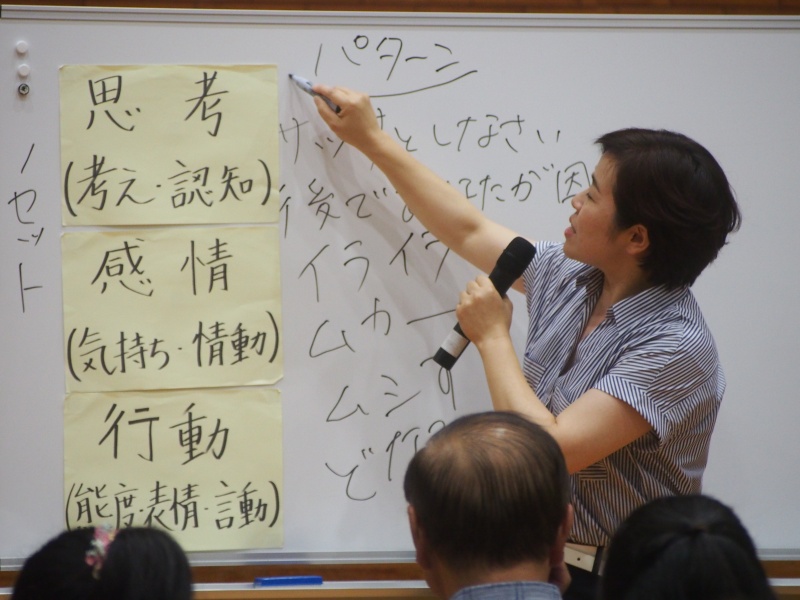 ノセット
思考
(考え・認知)
感情
(気持ち・情動)
行動
(能度・表情・言動)
パターン
サッサとしなさい
後で
イライラ
ムカー
ムシ